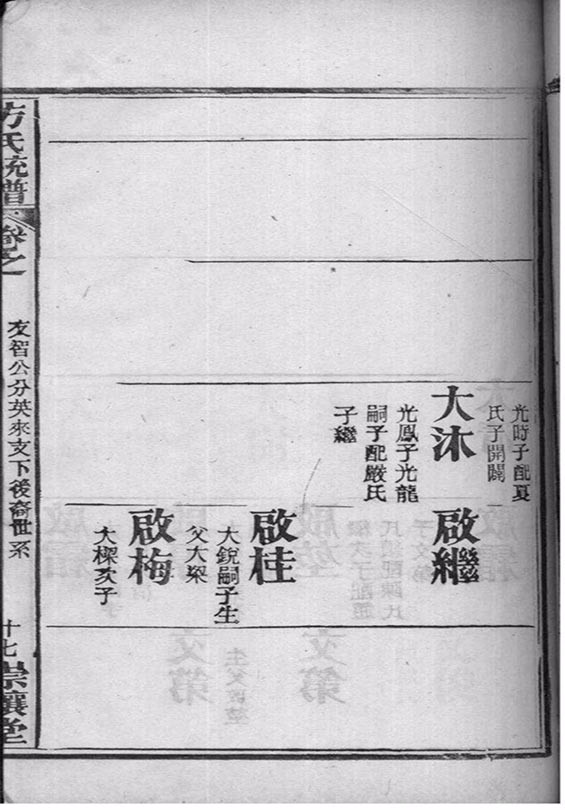 光時子配夏
氏子開
大沐
光鳳子光龍
嗣子配嚴氏
子繼
啟繼
啟桂
大銳嗣子生
父大
啟梅
大樑次子
方氏統譜
卷之
友智公分英來支下後裔世系
十七
崇讓堂